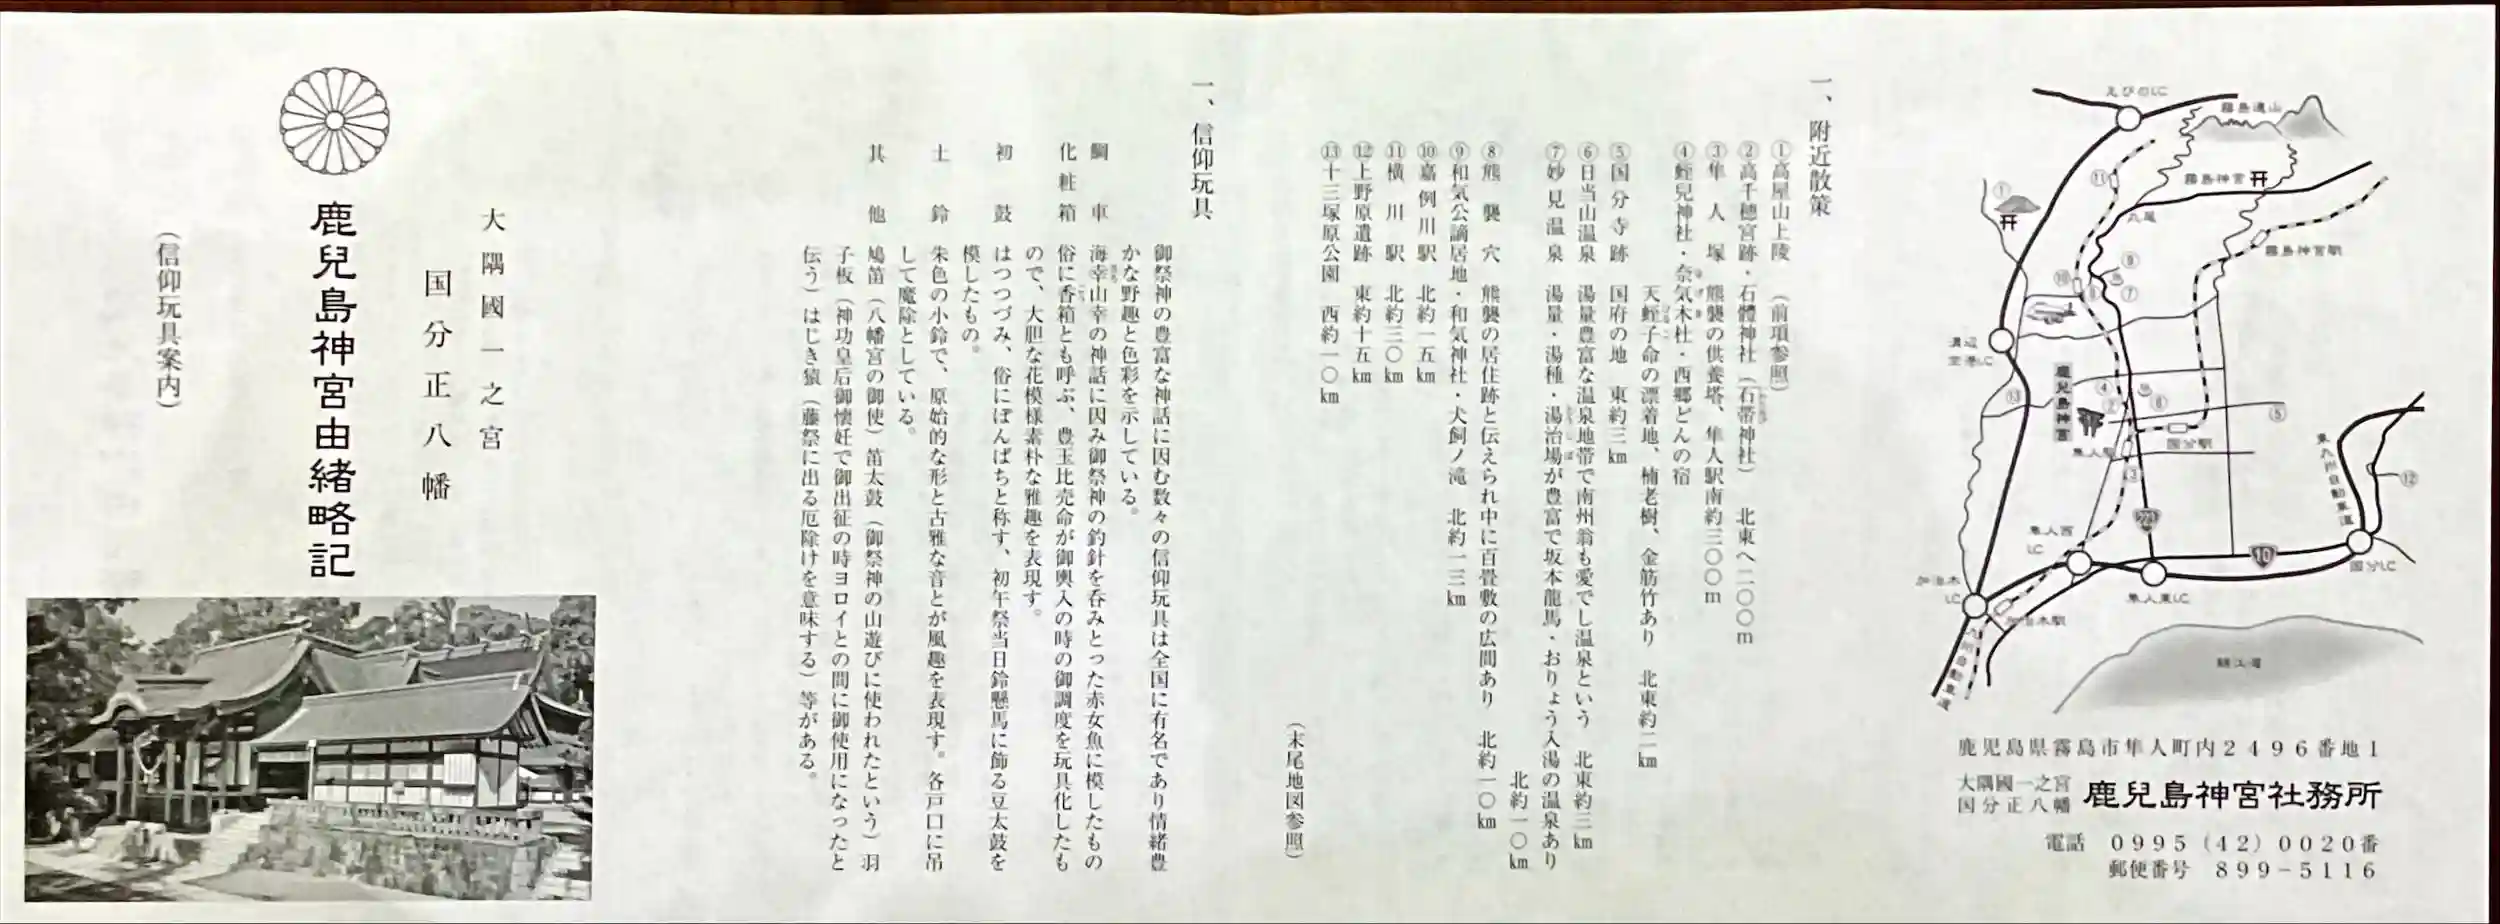 えびのI.C
霧島連山
霧島神宮
丸尾
霧島神宮駅
①
⑪
⑩
⑧
⑨
⑦
溝辺
空港I.C
⑬
鹿兒島神宮
④
②
⑥
⑤
国分駅
隼人駅
③
223
10
東九州自動車道
⑫
隼人西
I.C
加治木
I.C
加治木駅
隼人東I.C
国分I.C
九州自動車道
錦江湾
鹿児島県霧島市隼人町内2496番地1
大隅國一之宮
国分正八幡
鹿兒島神宮社務所
電話 0995(42)0020番
郵便番号 899-5116
一、附近散策
①高屋山上陵 (前項参照)
②高千穂宮跡・石體神社(石帯神社) 北東へ二〇〇m
③隼人塚 熊襲の供養塔、隼人駅南約三〇〇m
④蛭兒神社・奈気木杜・西郷どんの宿
天蛭子命の漂着地、楠老樹、金筋竹あり 北東約二km
⑤国分寺跡 国府の地 東約三km
⑥日当山温泉 湯量豊富な温泉地帯で南州翁も愛でし温泉という 北東約三km
⑦妙見温泉 湯量・湯種・湯治場が豊富で坂本龍馬・おりょう入湯の温泉あり
北約一〇km
⑧熊襲穴 熊襲の居住跡と伝えられ中に百畳敷の広間あり 北約一〇km
⑨和気公謫居地・和気神社・犬飼ノ滝 北約一三km
⑩嘉例川駅 北約一五km
⑪横川駅 北約三〇km
⑫上野原遺跡 東約十五km
⑬十三塚原公園 西約一〇km
(末尾地図参照)
一、信仰玩具
御祭神の豊富な神話に因む数々の信仰玩具は全国に有名であり情緒豊
かな野趣と色彩を示している。
鯛車 海幸山幸の神話に因み御祭神の釣針を呑みとった赤女魚に模したもの
化粧箱 俗に香箱とも呼ぶ、豊玉比売命が御輿入の時の御調度を玩具化したも
ので、大胆な花模様素朴な雅趣を表現す。
初鼓 はつつづみ、俗にぽんぱちと称す、初午祭当日鈴懸馬に飾る豆太鼓を
模したもの。
土鈴 朱色の小鈴で、原始的な形と古雅な音とが風趣を表現す。各戸口に吊
して魔除としている。
其他 鳩笛(八幡宮の御使)笛太鼓(御祭神の山遊びに使われたという)羽
子板(神功皇后御懐妊で御出征の時ヨロイとの間に御使用になったと
伝う)はじき猿(藤祭に出る厄除けを意味する)等がある。
大隅國一之宮
国分正八幡
鹿兒島神宮由緒略記
(信仰玩具案内)